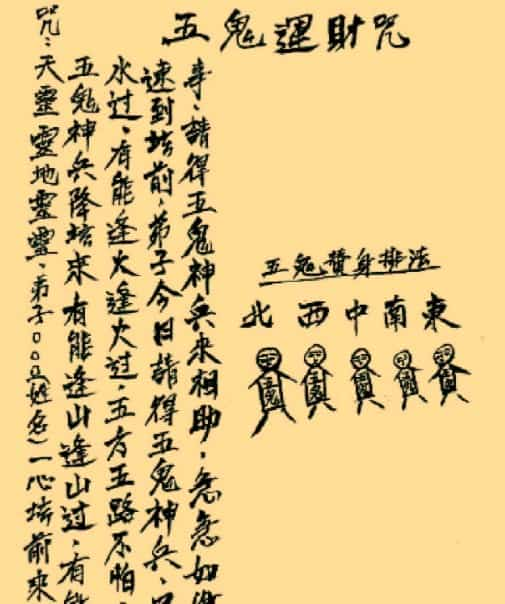 五鬼運財咒
咒：天靈靈地靈靈，弟子○○○(姓名)一心坛前來
五鬼神兵降坛來有能逢山逢山過，有能
水过，有能逢火逢火过，五方五路不怕，
速到坛前，弟子今日請得五鬼神兵，
事，請得五鬼神兵來相助，急急如律
五鬼替身排法
北 西 中 南 東
五鬼